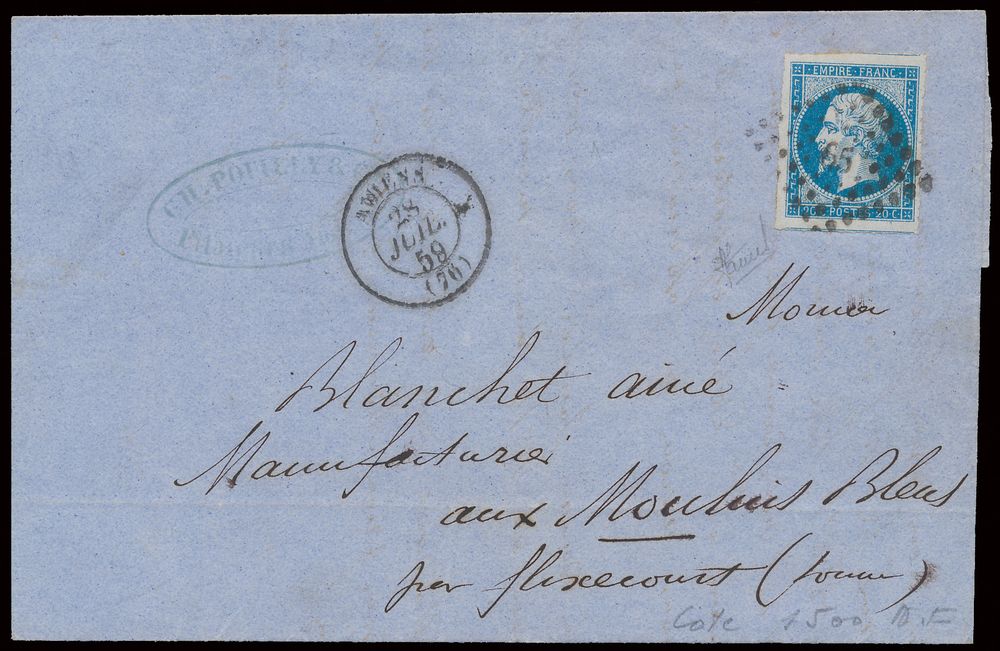 EMPIRE · FRANC ·
65
20 C · POSTES · 20 C ·
CH. POUILLY &
AMIENS
28
JUIL.
59
(76)
Monsieur
Blanchet ainé
Manufacturier
aux Moulins Bleus
par flixecourt (Somme)
Cote 1500